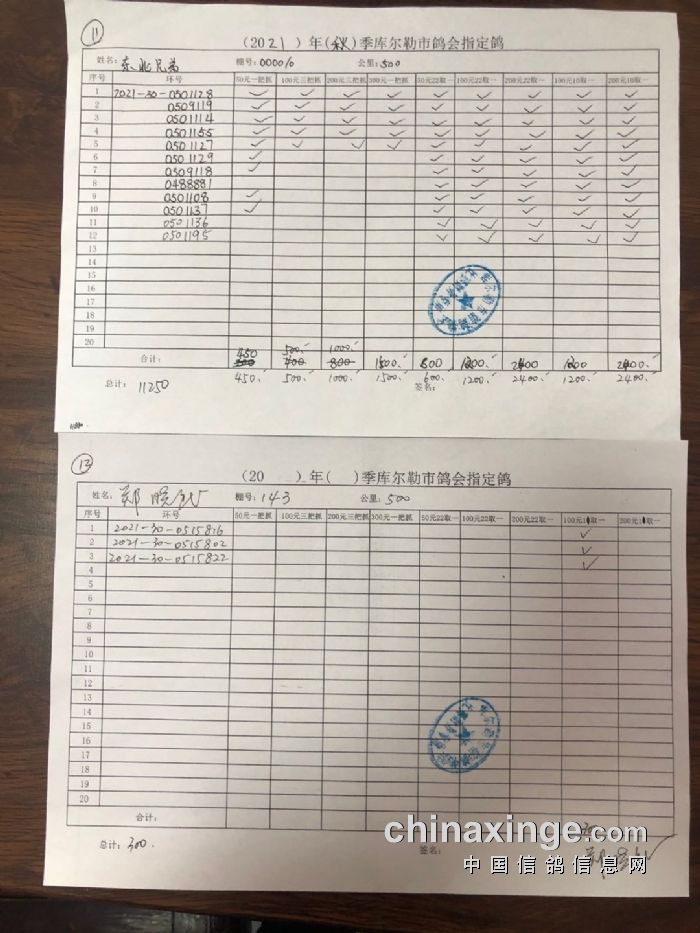 11
(2021)年(秋)季库尔勒市鸽会指定鸽
姓名：东北兄弟 棚号：000010 公里：500
序号 环号 50元一把抓 100元三把抓 200元三把抓 300元一把抓 50元22取一 100元22取一 200元22取一 100元10取一 200元10取一
1 2021-30-0501128 ✓ ✓ ✓ ✓ ✓ ✓ ✓ ✓ ✓
2 0509119 ✓ ✓ ✓ ✓ ✓ ✓ ✓ ✓ ✓
3 0501114 ✓ ✓ ✓ ✓ ✓ ✓ ✓ ✓ ✓
4 0501155 ✓ ✓ ✓ ✓ ✓ ✓ ✓ ✓ ✓
5 0501127 ✓ ✓ ✓ ✓ ✓ ✓ ✓ ✓ ✓
6 0501129 ✓ ✓ ✓ ✓ ✓ ✓
7 0509118 ✓ ✓ ✓ ✓ ✓ ✓
8 0488881 ✓ ✓ ✓ ✓ ✓
9 0501108 ✓ ✓ ✓ ✓ ✓ ✓
10 0501137 ✓ ✓ ✓ ✓ ✓ ✓
11 0501136 ✓ ✓ ✓ ✓ ✓
12 0501195 ✓ ✓ ✓ ✓ ✓
13
14
15
16
17
18
19
20
450 500. 1000.
合计： 400 800 1500 1200 2400
总计：11250 450. 500. 1000. 1500. 600. 1200. 2400. 1200. 2400.
签名：
13
(20 )年( )季库尔勒市鸽会指定鸽
姓名：郑 棚号：143 公里：500
序号 环号 50元一把抓 100元三把抓 200元三把抓 300元一把抓 50元22取一 100元22取一 200元22取一 100元 取一 200元 取一
1 2021-30-0515816 ✓
2 2021-30-0515802 ✓
3 2021-30-0515822 ✓
4
5
6
7
8
9
10
11
12
13
14
15
16
17
18
19
20
合计：
总计：300.
签名：郑
chinaxinge.com
中国信鸽信息网